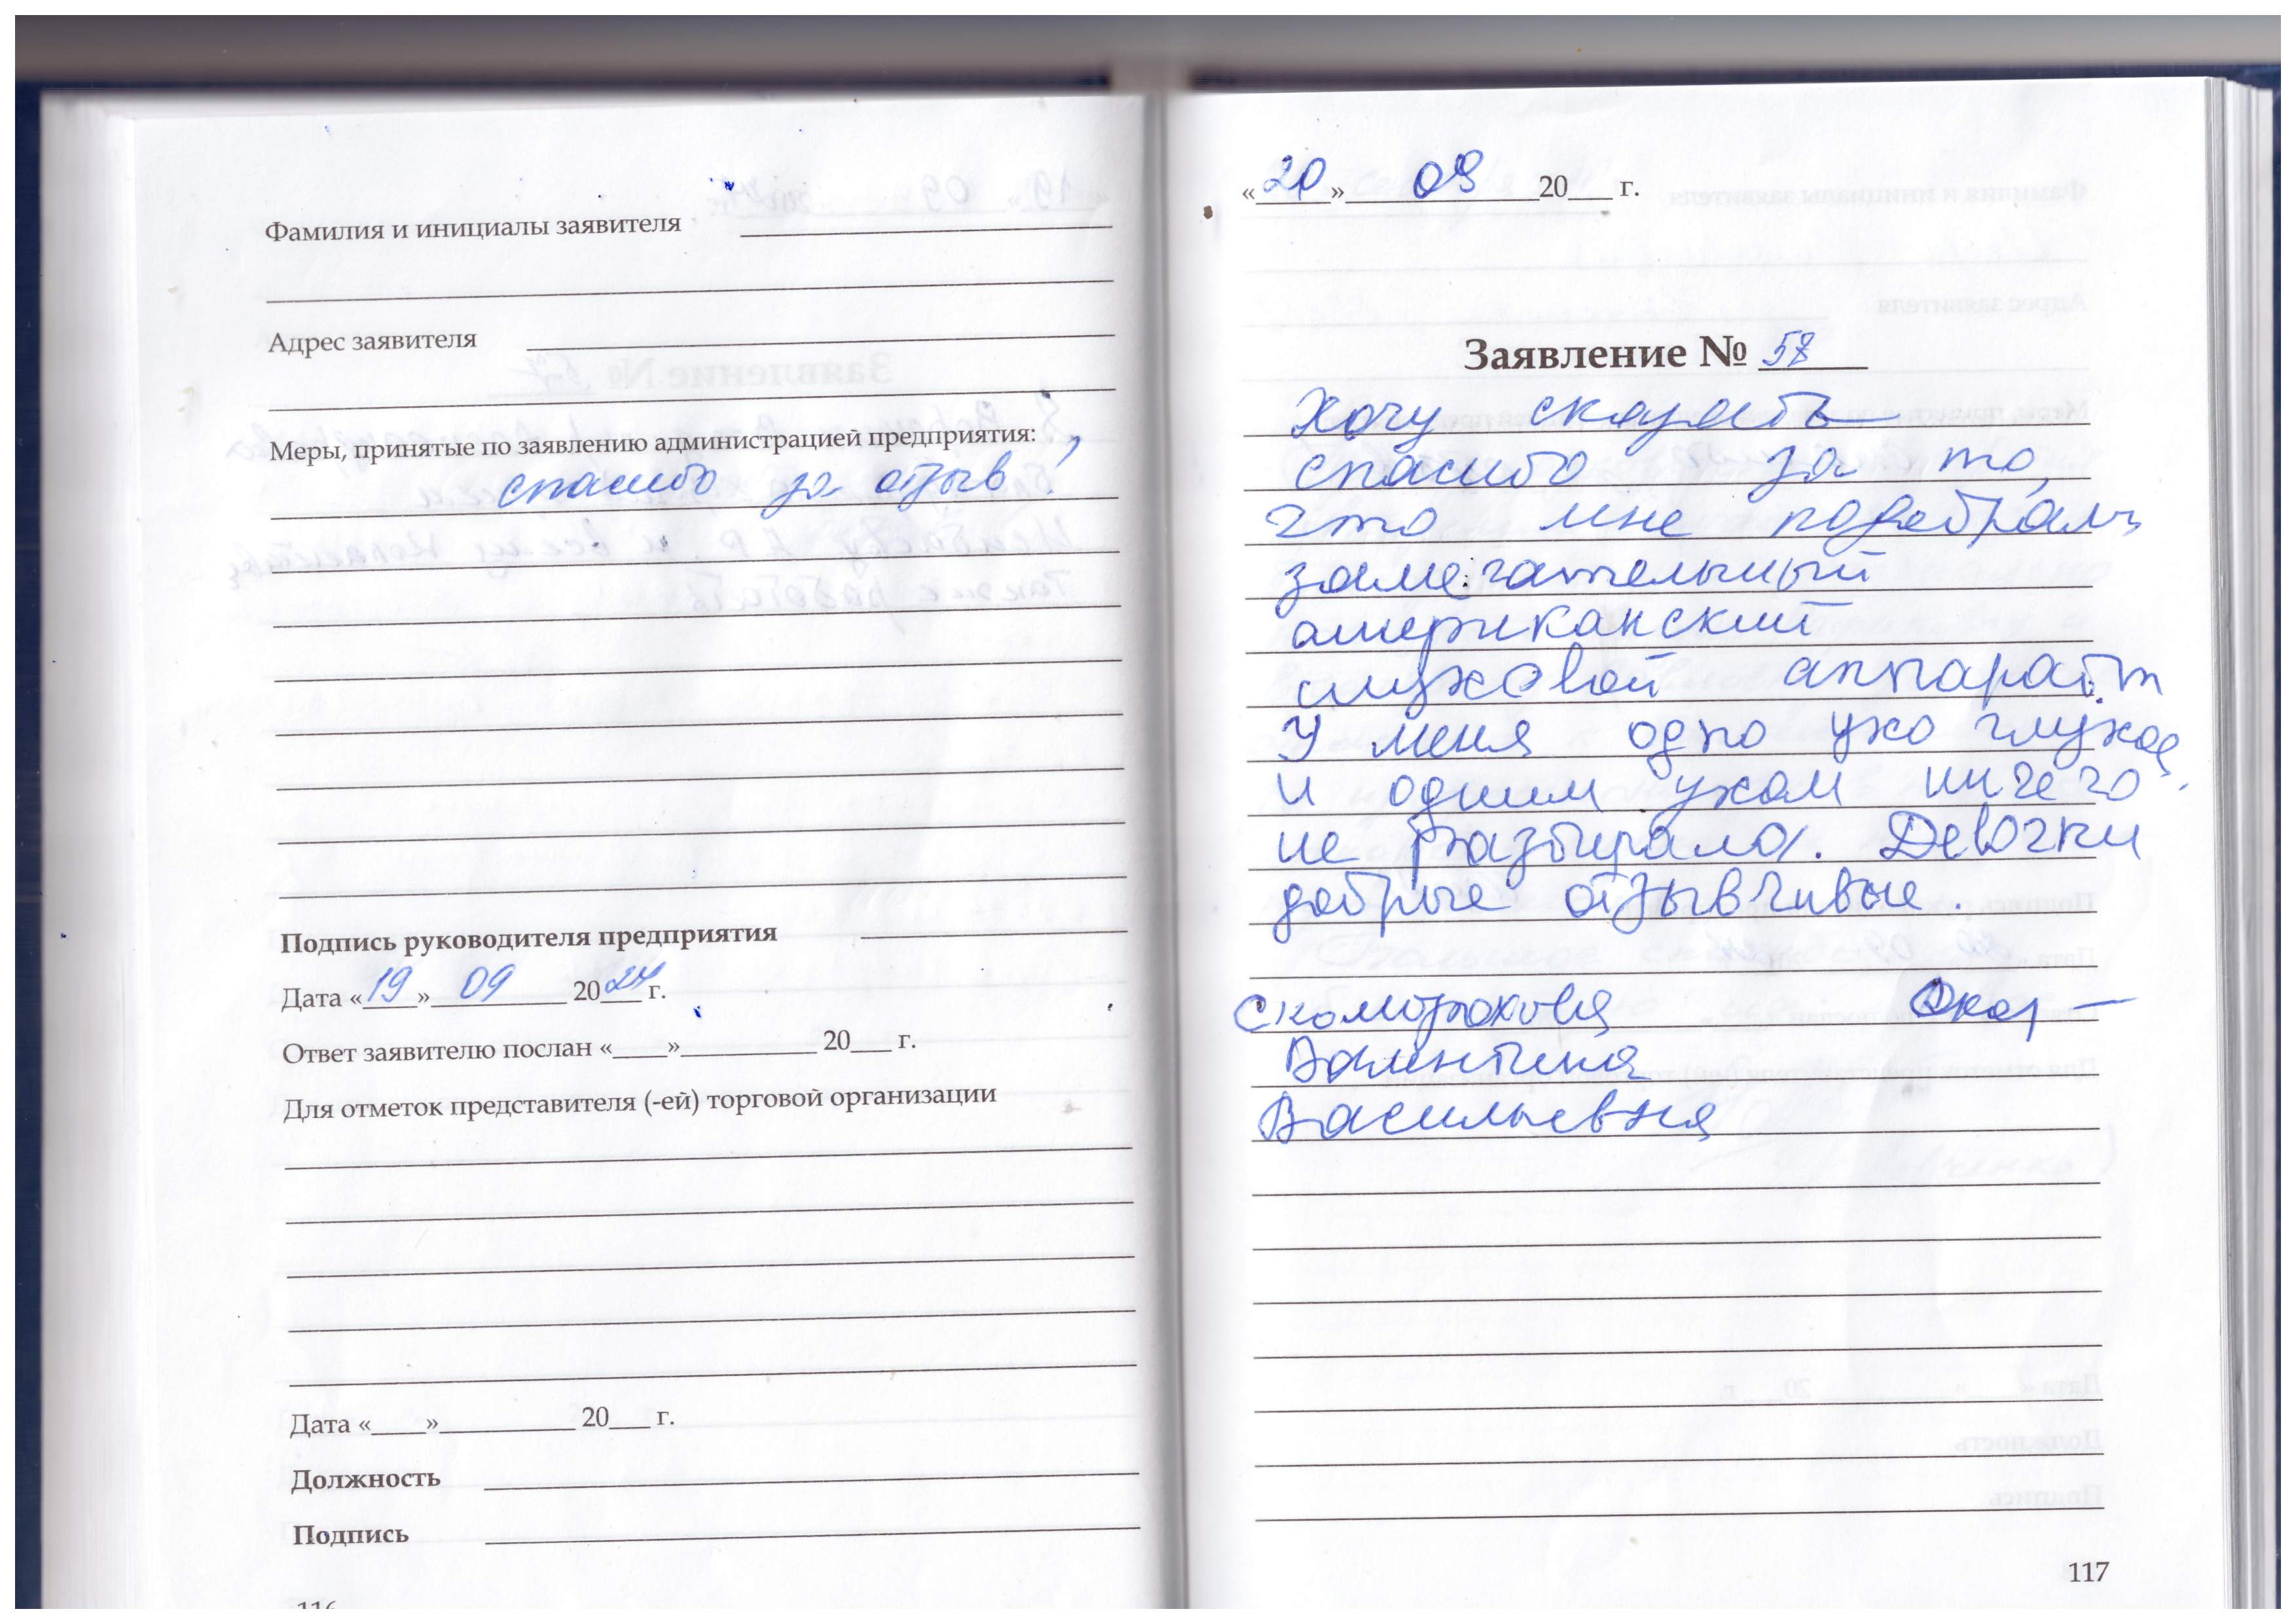 Фамилия и инициалы заявителя
Адрес заявителя
Меры, принятые по заявлению администрацией предприятия:
спасибо за отзыв!
Подпись руководителя предприятия
Дата «19» 09 2024 г.
Ответ заявителю послан «____»__________ 20___ г.
Для отметок представителя (-ей) торговой организации
Дата «____»__________ 20___ г.
Должность
Подпись
116
«20» 09 20___ г.
Заявление № 58
Хочу сказать
спасибо за то,
что мне подобрали
замечательный
американский
слуховой аппарат
У меня одно ухо глухое,
и одним ухом ничего
не разбирала. Девочки
добрые отзывчивые.
Скоморохова
Валентина
Васильевна
117